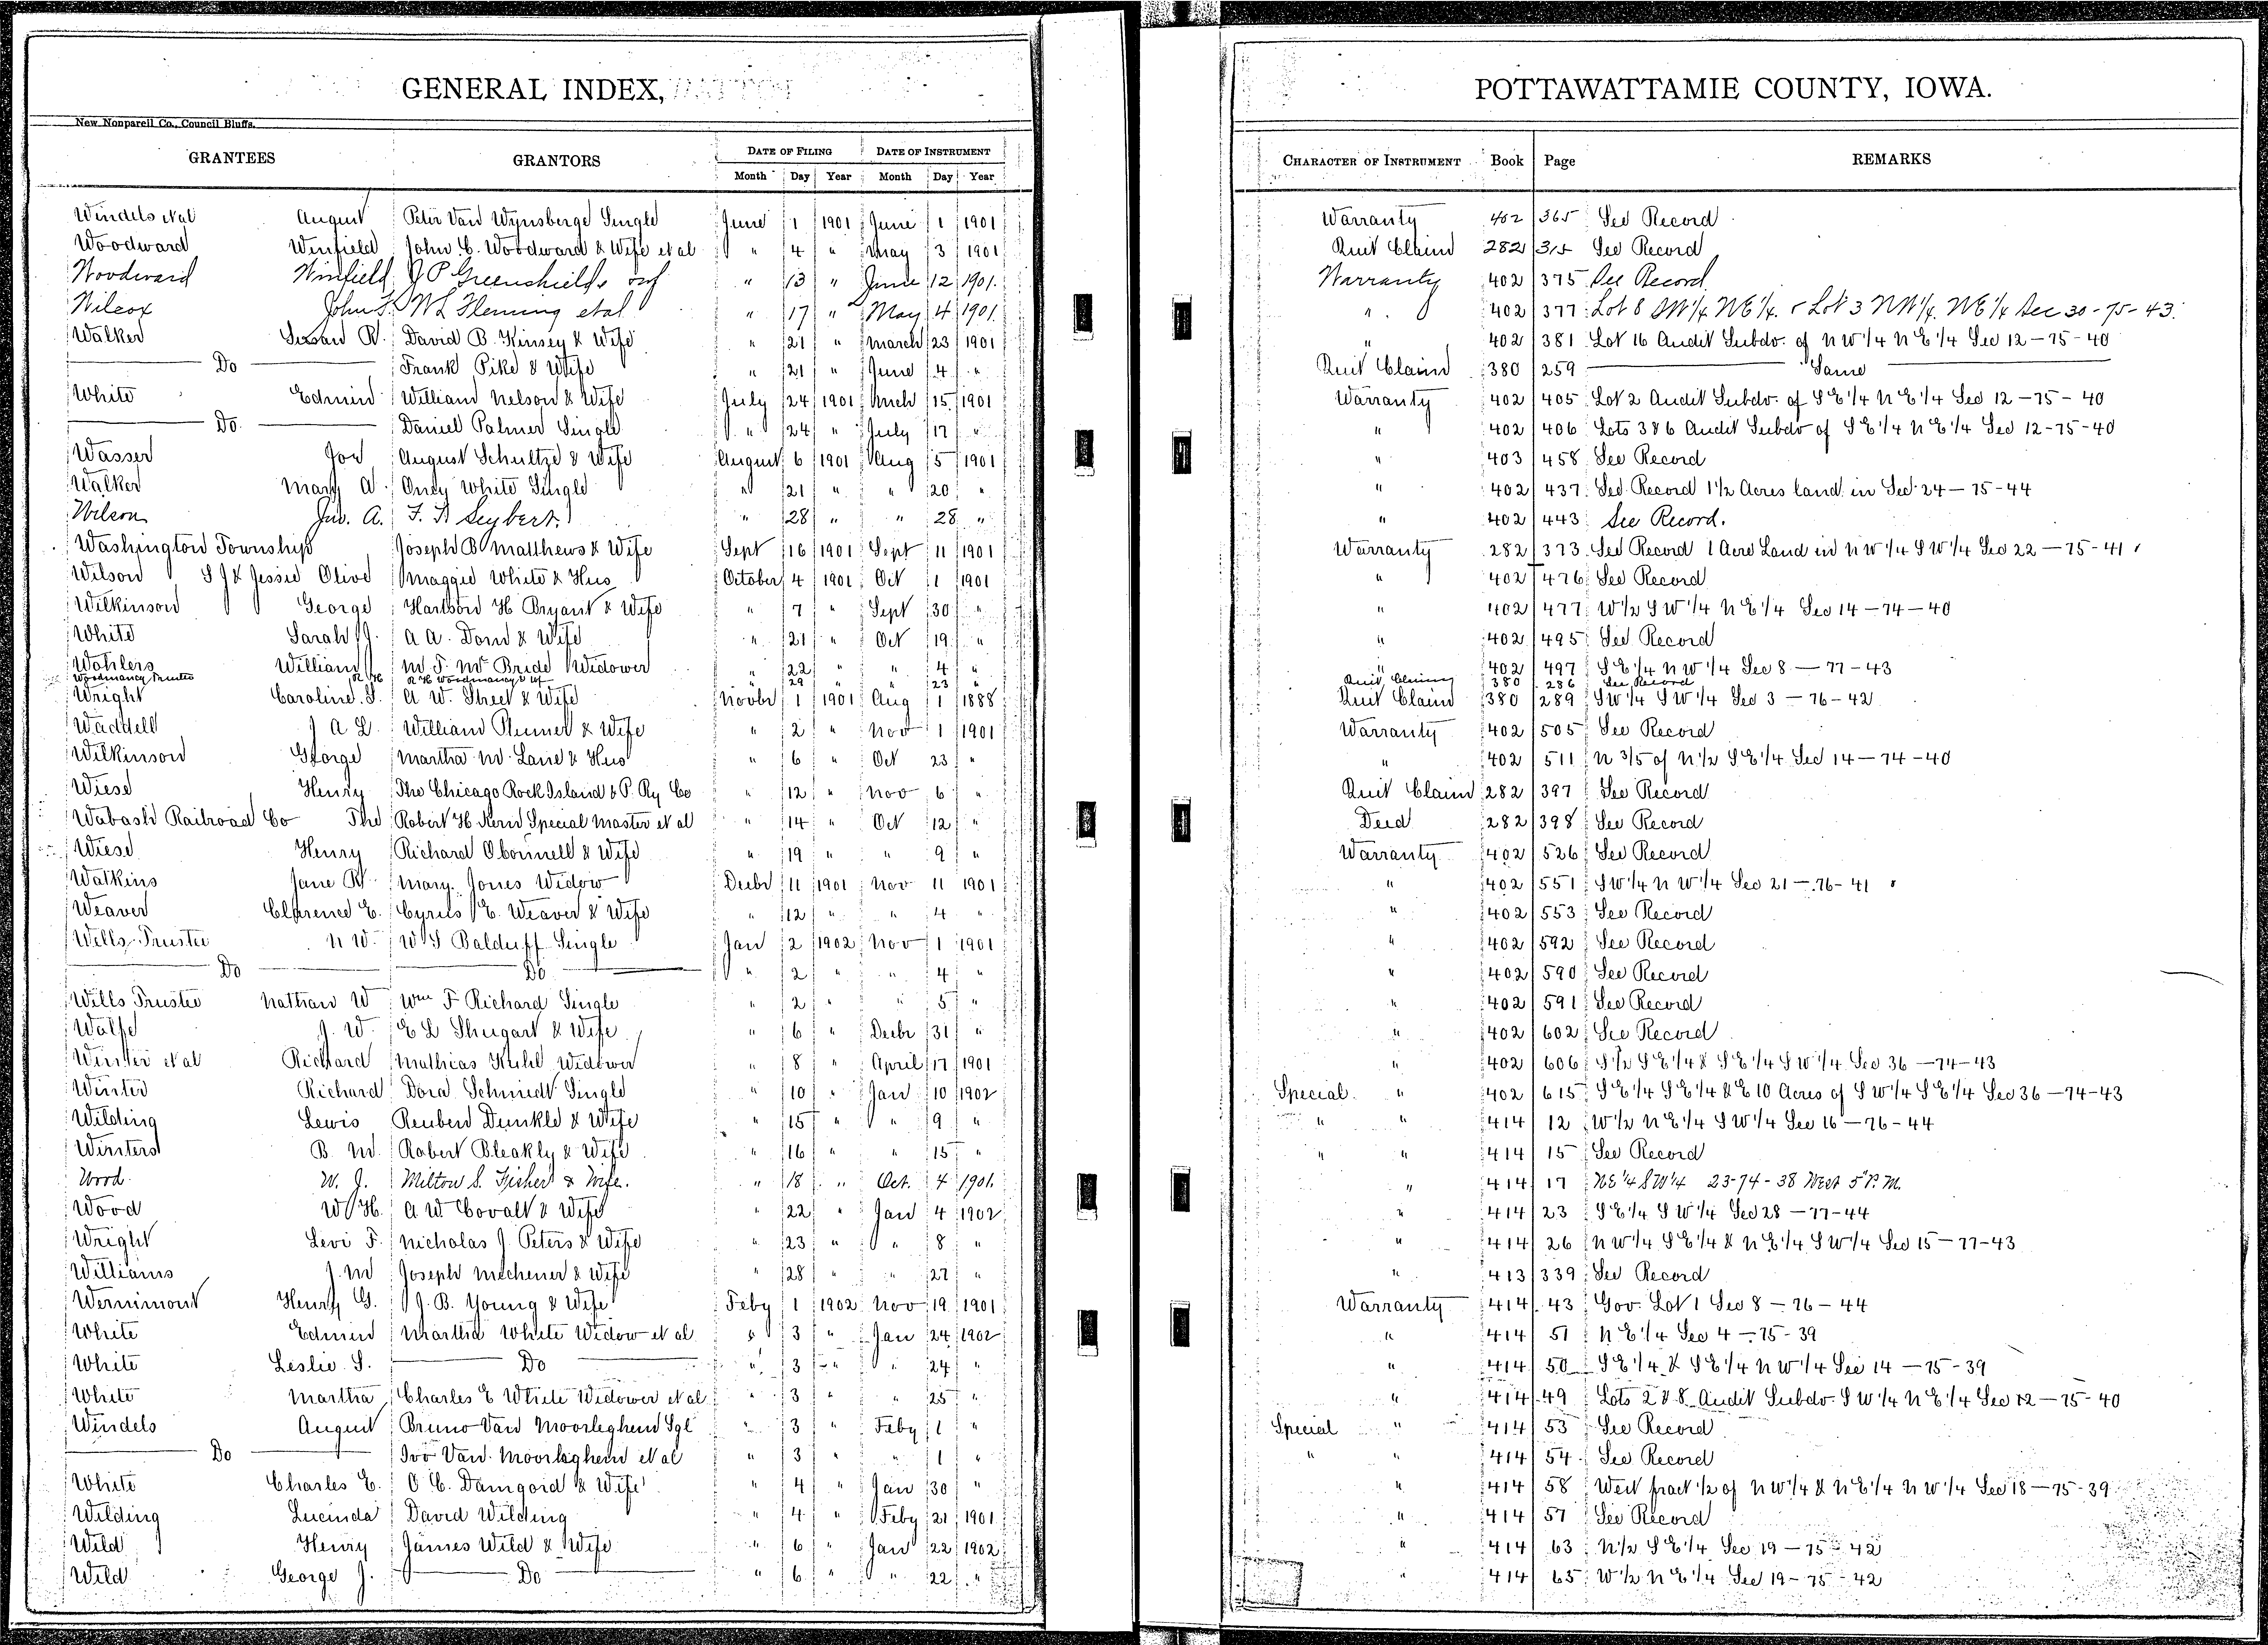 GENERAL INDEX,
New Nonpareil Co., Council Bluffs.
GRANTEES GRANTORS DATE OF FILING DATE OF INSTRUMENT
Month Day Year Month Day Year
POTTAWATTAMIE COUNTY, IOWA.
CHARACTER OF INSTRUMENT Book Page REMARKS
Windels et al August Peter Van Wynsberge Single June 1 1901 June 1 1901 Warranty 402 365 See Record
Woodward Winfield John C. Woodward & Wife et al " 4 " May 3 1901 Quit Claim 282 315 See Record
Woodward Winfield J P Greenshields " 13 " June 12 1901. Warranty 402 375 See Record
Wilcox W L Fleming et al " 17 " May 4 1901. " 402 377 Lot 8 SW 1/4 NE 1/4. & Lot 3 NW 1/4. NE 1/4 Sec 30-75-43.
Walker David B. Kinsey & Wife " 21 " March 23 1901 " 402 381 Lot 16 Audit Subdv. of N W 1/4 N E 1/4 Sec 12-75-40
Do Frank Pike & Wife " 21 " June 4 " Quit Claim 380 259 Same
White Edmund William Nelson & Wife July 24 1901 March 15 1901 Warranty 402 405 Lot 2 Audit Subdv. of S E 1/4 N E 1/4 Sec 12-75-40
Do. Daniel Palmer Single " 24 " July 17 " " 402 406 Lots 3 & 6 Audit Subdv of S E 1/4 N E 1/4 Sec 12-75-40
Wasser Joe August Schultze & Wife August 6 1901 Aug 5 1901 " 403 458 See Record
Walker Mary A. Oney White Single " 21 " " 20 " " 402 437 See Record 1 1/2 Acres land in Sec 24-75-44
Wilson Jno. A. F. Seybert. " 28 " " 28 " " 402 443 See Record.
Washington Township Joseph B Matthews & Wife Sept 16 1901 Sept 11 1901 Warranty 282 373 See Record 1 Acre Land in N W 1/4 S W 1/4 Sec 22-75-41
Wilson S J & Jessie Olive Maggie White & Hus October 4 1901 Oct 1 1901 " 402 476 See Record
Wilkinson George Harlson H Bryant & Wife " 7 " Sept 30 " " 402 477 W 1/2 S W 1/4 N E 1/4 Sec 14-74-40
White Sarah J. A A. Dond & Wife " 21 " Oct 19 " " 402 495 See Record
Wohlers William M F. McBride Widower " 22 " " 4 " " 402 497 S E 1/4 N W 1/4 Sec 8-77-43
Woodmancy Trustee R H R H Woodmancy & Wf " 29 " " 23 " Quit Claim 380 286 See Record
Wright Caroline. S. A W. Street & Wife Novbr 1 1901 Aug 1 1888 Quit Claim 380 289 S W 1/4 S W 1/4 Sec 3-76-42
Waddell J A L. William Plumer & Wife " 2 " Nov 1 1901 Warranty 402 505 See Record
Wilkinson George Martha M. Lane & Hus " 6 " Oct 23 " " 402 511 N 3/5 of N 1/2 S E 1/4 Sec 14-74-40
Wiese Henry The Chicago Rock Island & P. Ry Co " 12 " Nov 6 " Quit Claim 282 397 See Record
Wabash Railroad Co The Robert H Kern Special Master et al " 14 " Oct 12 " Deed 282 398 See Record
Wiese Henry Richard Obonnell & Wife " 19 " " 9 " Warranty 402 526 See Record
Watkins Jane R Mary. Jones Widow Decbr 11 1901 Nov 11 1901 " 402 551 S W 1/4 N W 1/4 Sec 21-76-41
Weaver Clarence E. Cyrus E. Weaver & Wife " 12 " " 4 " " 402 553 See Record
Wells Trustee N W. W S Balduff Single Jan 2 1902 Nov 1 1901 " 402 592 See Record
Do Do " 2 " " 4 " " 402 590 See Record
Wells Trustee Nathan W Wm F Richard Single " 2 " " 5 " " 402 591 See Record
Walfe J. W. E L Shugart & Wife " 6 " Decbr 31 " " 402 602 See Record
Winter et al Richard Mathias Kuhl Widower " 8 " April 17 1901 " 402 606 S 1/2 S E 1/4 & S E 1/4 S W 1/4 Sec 36-74-43
Winter Richard Dora Schmidt Single " 10 " Jan 10 1902 Special " 402 615 S E 1/4 S E 1/4 & E 10 Acres of S W 1/4 S E 1/4 Sec 36-74-43
Wilding Lewis Reuben Dunkle & Wife " 15 " " 9 " " " 414 12 W 1/2 N E 1/4 S W 1/4 Sec 16-76-44
Winters B. M. Robert Bleakly & Wife " 16 " " 15 " " " 414 15 See Record
Wood. W. J. Milton S. Fisher & Wife. " 18 " Oct. 4 1901. " 414 17 NE 1/4 SW 1/4 23-74-38 West 5 P. M.
Wood W H. A W Covalt & Wife " 22 " Jan 4 1902 " 414 23 S E 1/4 S W 1/4 Sec 28-77-44
Wright Levi F. Nicholas J. Peters & Wife " 23 " " 8 " " 414 26 N W 1/4 S E 1/4 & N E 1/4 S W 1/4 Sec 15-77-43
Williams J. M Joseph Mechener & Wife " 28 " " 27 " " 413 339 See Record
Wernimont Henry G. J. B. Young & Wife Feby 1 1902 Nov 19 1901 Warranty 414 43 Gov. Lot 1 Sec 8-76-44
White Edmund Martha White Widow et al " 3 " Jan 24 1902 " 414 51 N E 1/4 Sec 4-75-39
White Leslie. S. Do " 3 " " 24 " " 414 50 S E 1/4 & S E 1/4 N W 1/4 Sec 14-75-39
White Martha Charles E White Widower et al " 3 " " 25 " " 414 49 Lots 2 & 8 Audit Subdv. S W 1/4 N E 1/4 Sec 12-75-40
Windels August Bruno Van Moorleghem Sgl " 3 " Feby 1 " Special " 414 53 See Record
Do Ivo Van. Moorleghem et al " 3 " " 1 " " " 414 54 See Record
White Charles E. O C. Damgord & Wife " 4 " Jan 30 " " 414 58 West fract 1/2 of N W 1/4 & N E 1/4 N W 1/4 Sec 18-75-39
Wilding Lucinda David Wilding " 4 " Feby 21 1901 " 414 57 See Record
Wild Henry James Wild & Wife " 6 " Jan 22 1902 " 414 63 N 1/2 S E 1/4 Sec 19-75-42
Wild George J. Do " 6 " " 22 " " 414 65 W 1/2 N E 1/4 Sec 19-75-42